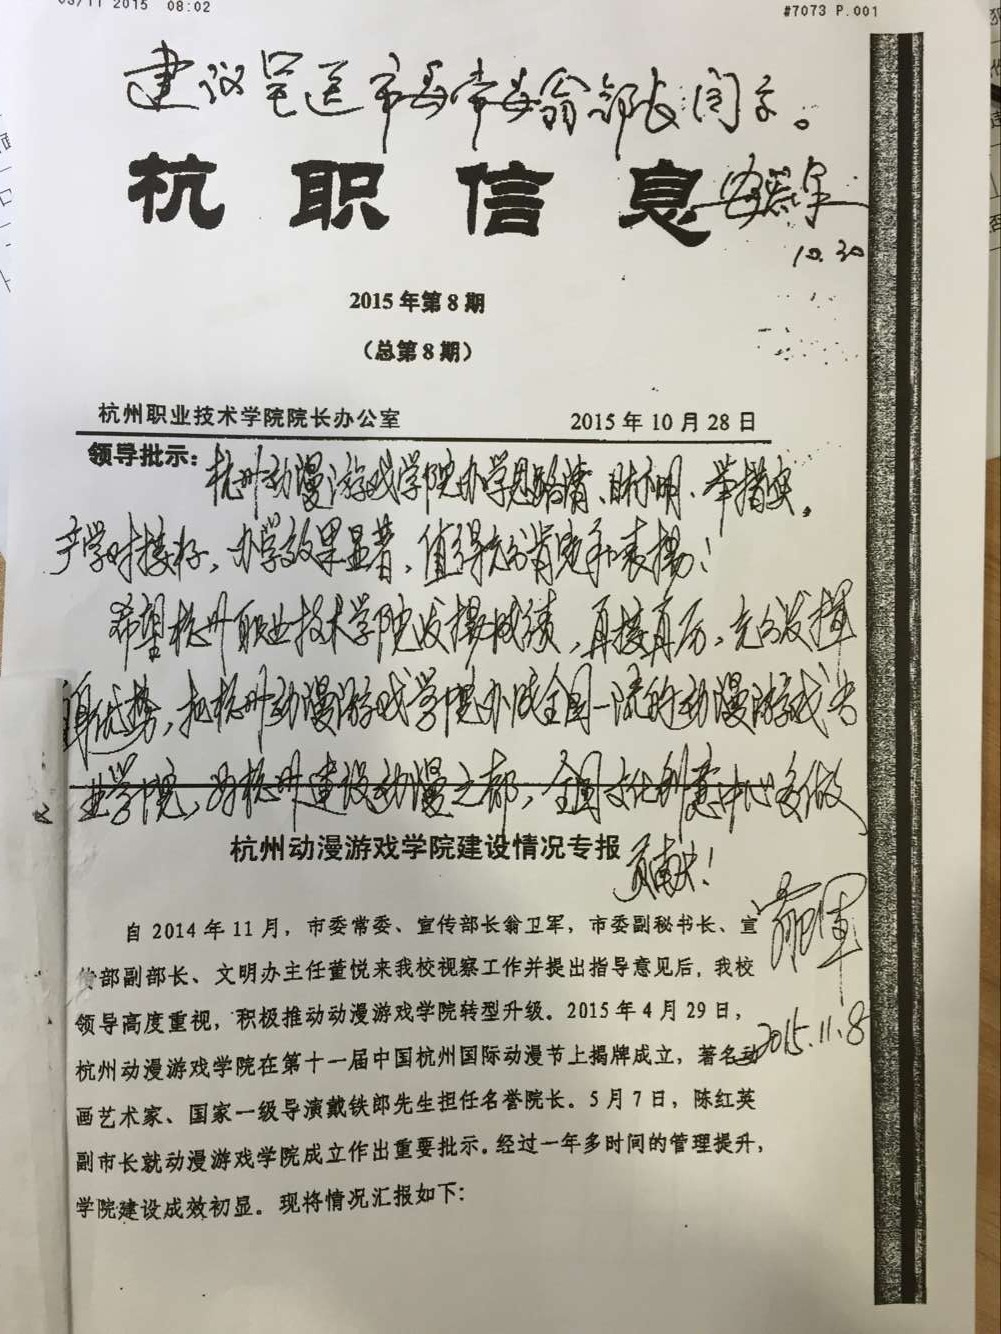 2015 08:02
#7073 P.001
建议呈送市委常委翁部长阅示。
杭职信息
安蓉泉
10.30
2015年第8期
（总第8期）
杭州职业技术学院院长办公室 2015年10月28日
领导批示：杭州动漫游戏学院办学思路清、目标明、举措实，
产学对接好，办学效果显著，值得充分肯定和表扬！
希望杭州职业技术学院发扬成绩，再接再厉，充分发挥
自身优势，把杭州动漫游戏学院办成全国一流的动漫游戏专
业学院，为杭州建设动漫之都，全国文化创意中心多做
贡献！
杭州动漫游戏学院建设情况专报
自2014年11月，市委常委、宣传部长翁卫军，市委副秘书长、宣
传部副部长、文明办主任董悦来我校视察工作并提出指导意见后，我校
领导高度重视，积极推动动漫游戏学院转型升级。2015年4月29日，
杭州动漫游戏学院在第十一届中国杭州国际动漫节上揭牌成立，著名动
画艺术家、国家一级导演戴铁郎先生担任名誉院长。5月7日，陈红英
副市长就动漫游戏学院成立作出重要批示。经过一年多时间的管理提升，
学院建设成效初显。现将情况汇报如下：
2015.11.8